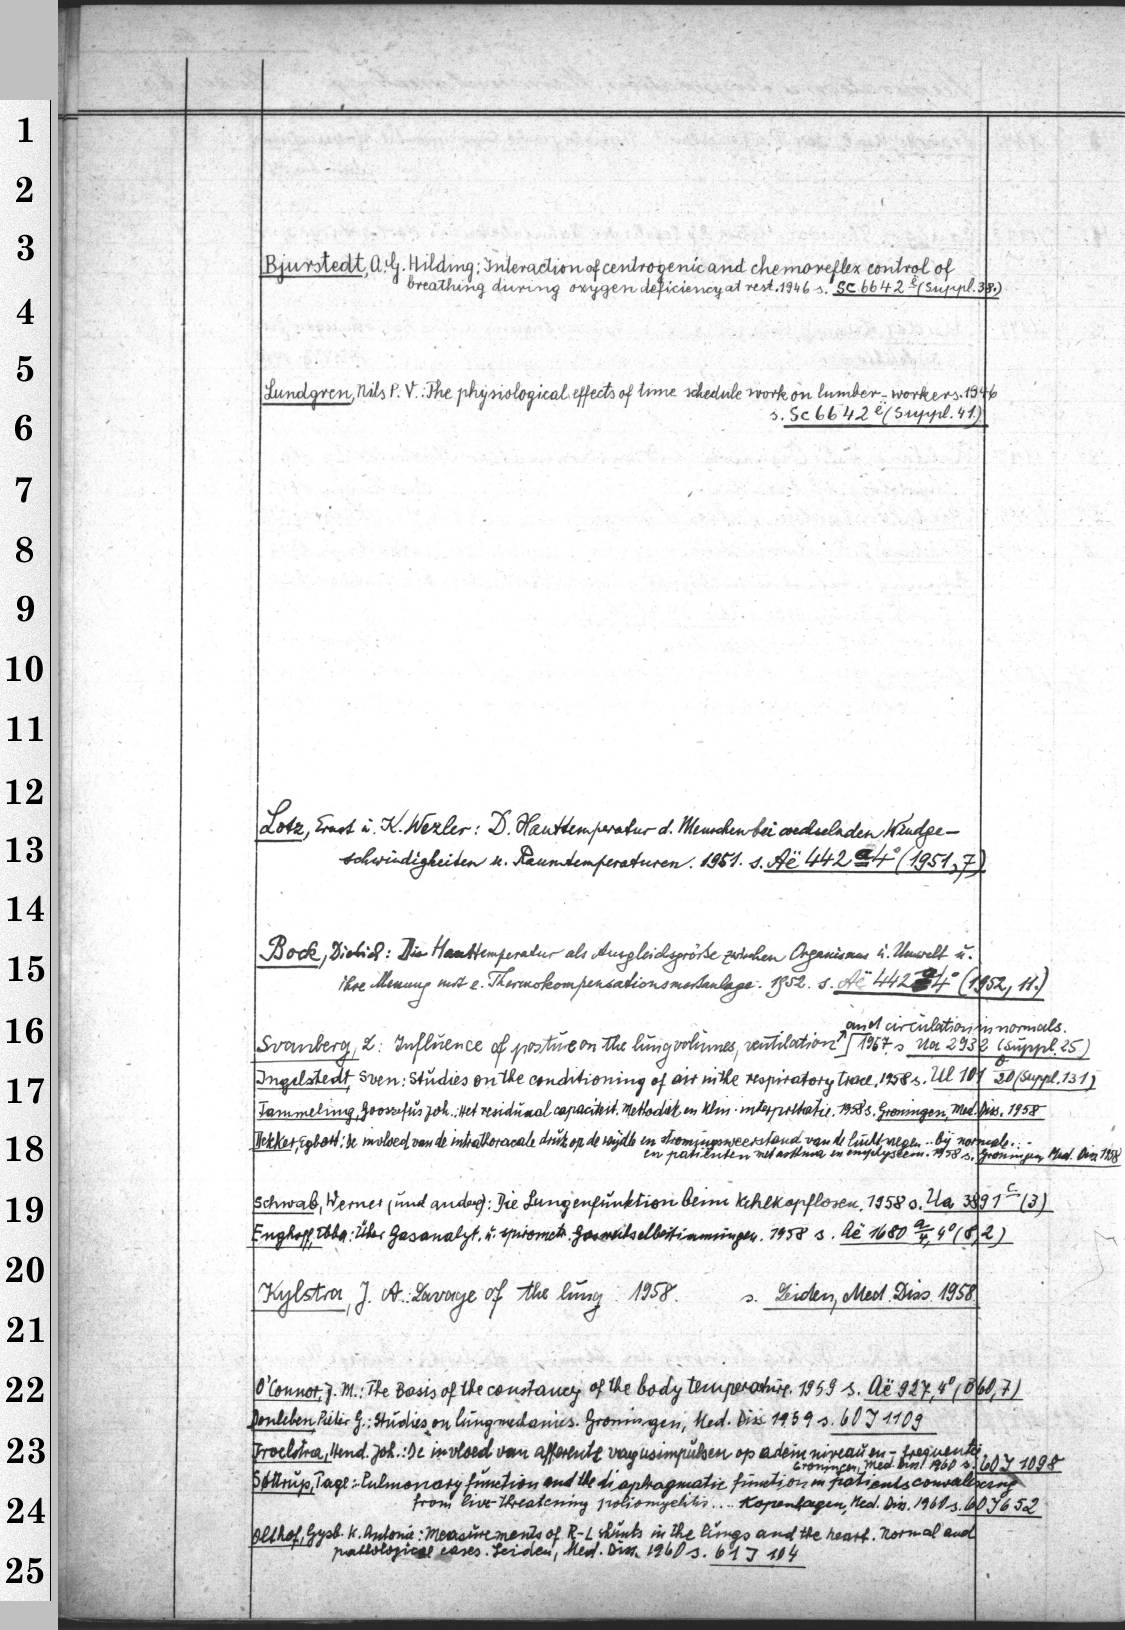 1
2
3
Bjurstedt, A. G. Hilding: Interaction of centrogenic and chemoreflex control of
breathing during oxygen deficiency at rest. 1946 s. Sc 6642 e (Suppl. 38.)
4
5
Lundgren, Nils P. V.: The physiological effects of time schedule work on lumber-workers. 1946
s. Sc 6642 e (Suppl. 41.)
6
7
8
9
10
11
12
Lotz, Ernst u. K. Wezler: D. Hauttemperatur d. Menschen bei wechselnden Windge-
13
schwindigkeiten u. Raumtemperaturen. 1951. s. Aë 442 a 4° (1951, 7)
14
Bock, Dietrich: Die Hauttemperatur als Ausgleichsgröße zwischen Organismus u. Umwelt u.
15
ihre Messung mit e. Thermokompensationsmessanlage. 1952. s. Aë 442 a 4° (1952, 11.)
16
and circulation in normals.
Svanberg, L: Influence of posture on the lung volumes, ventilation 1957. s Ua 2932 (Suppl. 25)
17
Ingelstedt, Sven: Studies on the conditioning of air in the respiratory tract. 1958 s. Ul 101 20 (Suppl. 131)
Tammeling, Gooszefus Joh.: Het residuaal capaciteit. Methodiek en klin. interpretatie. 1958 s. Groningen, Med. Diss. 1958
18
Dekker, Egbert: De invloed van de intrathoracale druk op de wijdte en stromingsweerstand van de luchtwegen .. bij normale ..
en patienten met asthma en emphyseem. 1958 s. Groningen, Med. Diss. 1958
19
Schwab, Werner (und andere): Die Lungenfunktion beim Kehlkopflosen. 1958 s. Ua 3891 c (3)
Enghoff, Ebba: Über Gasanalyt. u. spirometr. Gaswechselbestimmungen. 1958 s. Aë 1680 a/4, 4° (8,2)
20
Kylstra, J. A.: Lavage of the lung. 1958. s. Leiden, Med. Diss. 1958
21
22
O'Connor, J. M.: The Basis of the constancy of the body temperature. 1959 s. Aë 927, 4° (B 60, 7)
Donleben, Pieter G.: Studies on lungmechanics. Groningen, Med. Diss 1959 s. 60 J 1109
23
Troelstra, Hend. Joh.: De invloed van afferente vagusimpulsen op ademniveau en - frequentie
Groningen, Med. Diss. 1960 s. 60 J 1098
Sottrup, Tage: Pulmonary function and the diaphragmatic function in patients convalescing
24
from live-threatening poliomyelitis.... Kopenhagen, Med. Diss. 1960 s. 60 J 652
Olthof, Gysb. K. Antonie: Measurements of R-L shunts in the lungs and the heart. Normal and
25
pathological cases. Leiden, Med. Diss. 1960 s. 61 J 104